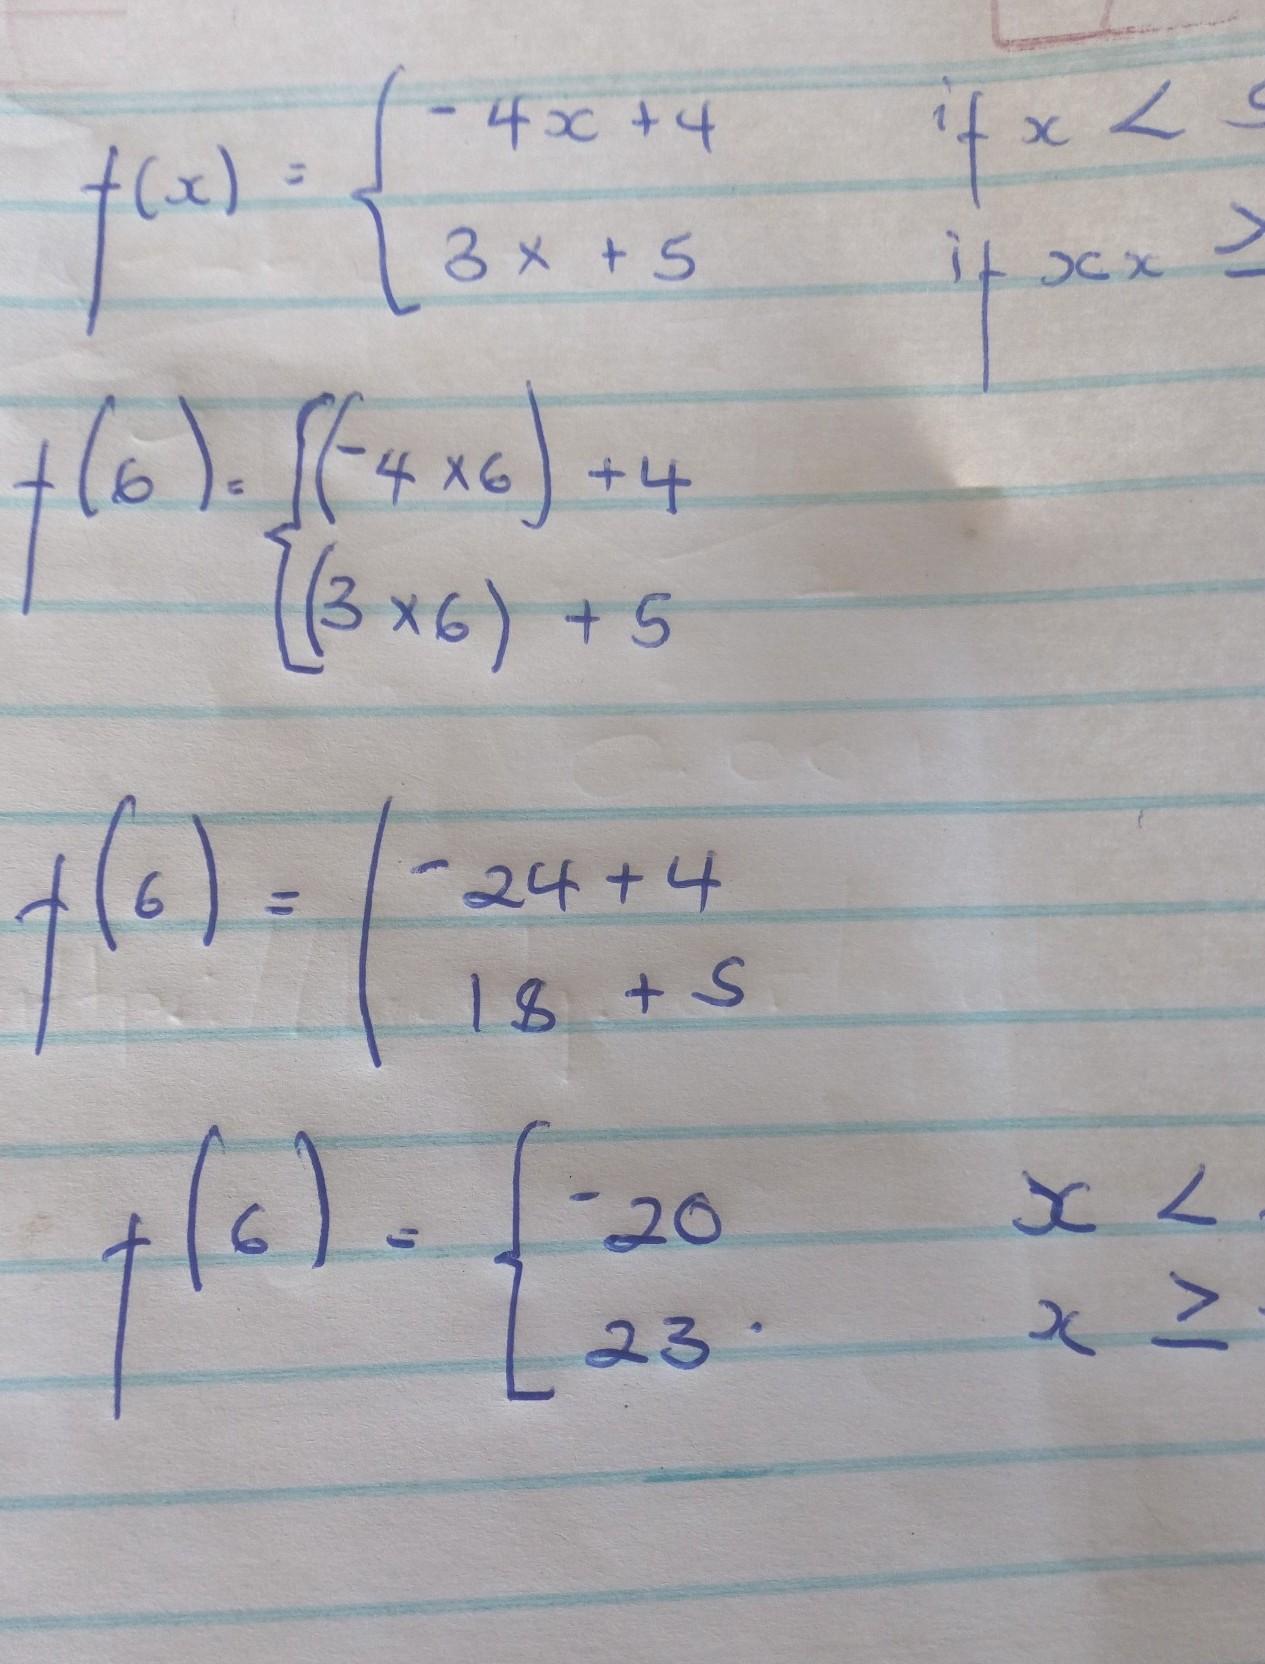 f(x) = { -4x + 4 if x <
3x + 5 if xx ≥
f(6) = { (-4 × 6) + 4
(3 × 6) + 5
f(6) = ( -24 + 4
18 + 5
f(6) = { -20 x <
23. x ≥